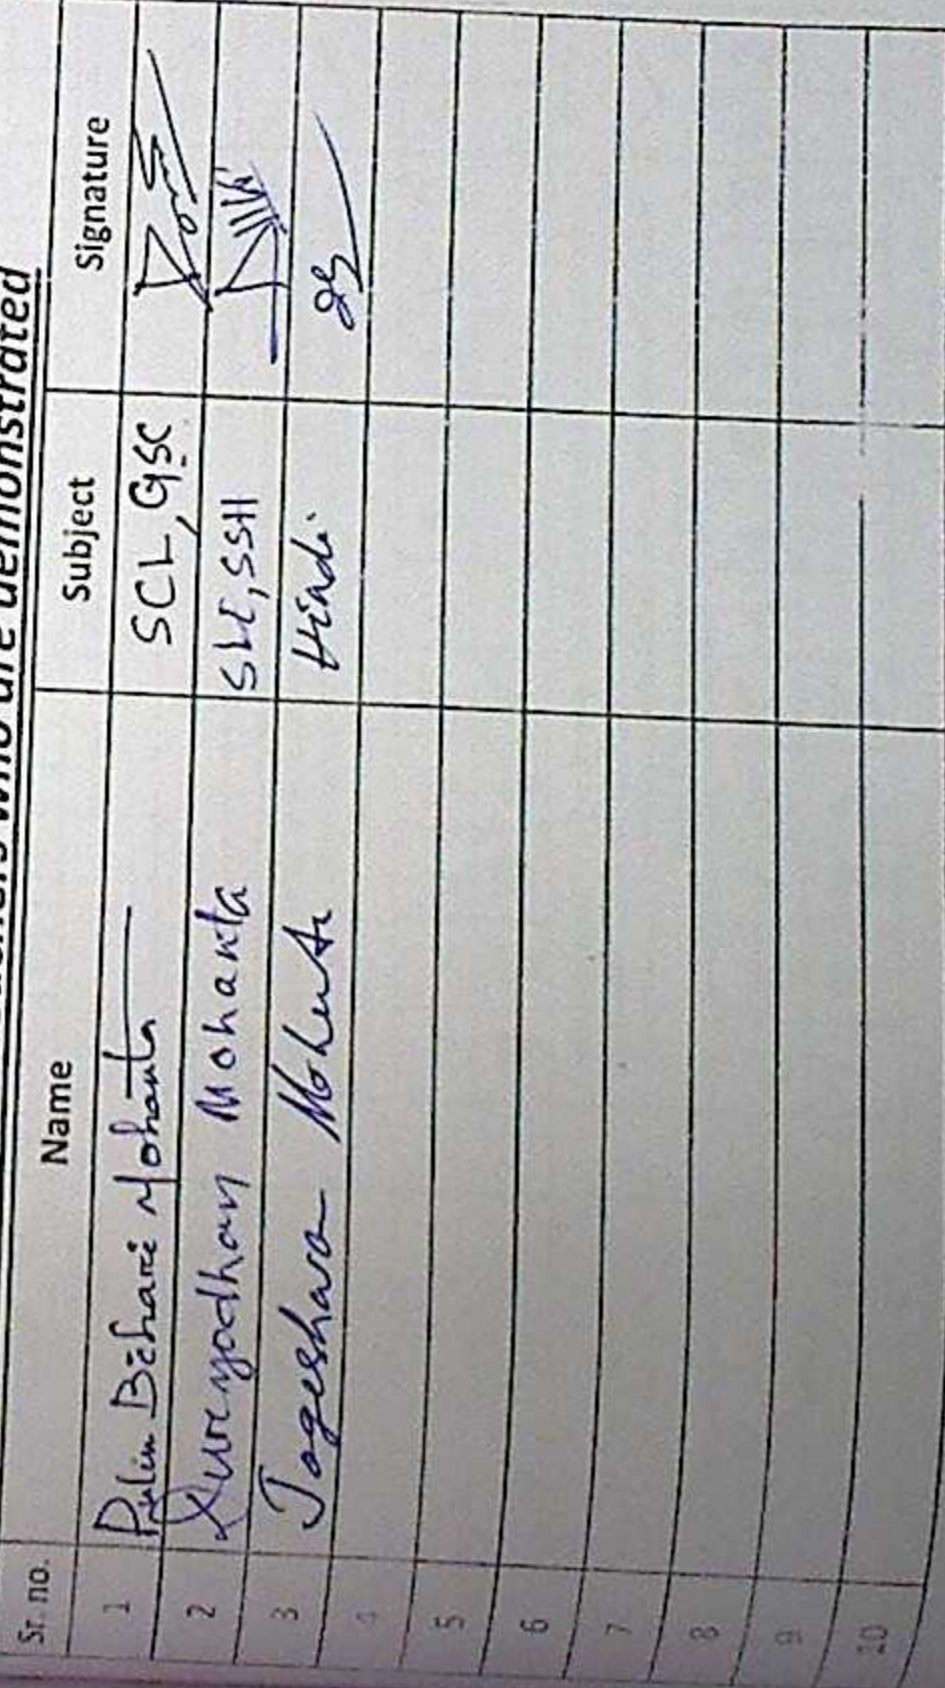 who are demonstrated
Sr. no. Name Subject Signature
1 Pulin Behari Mohanta SCL, GSC
2 Duryodhan Mohanta SLE, SSH
3 Jogeshwar Mohanta Hindi
4
5
6
7
8
9
10